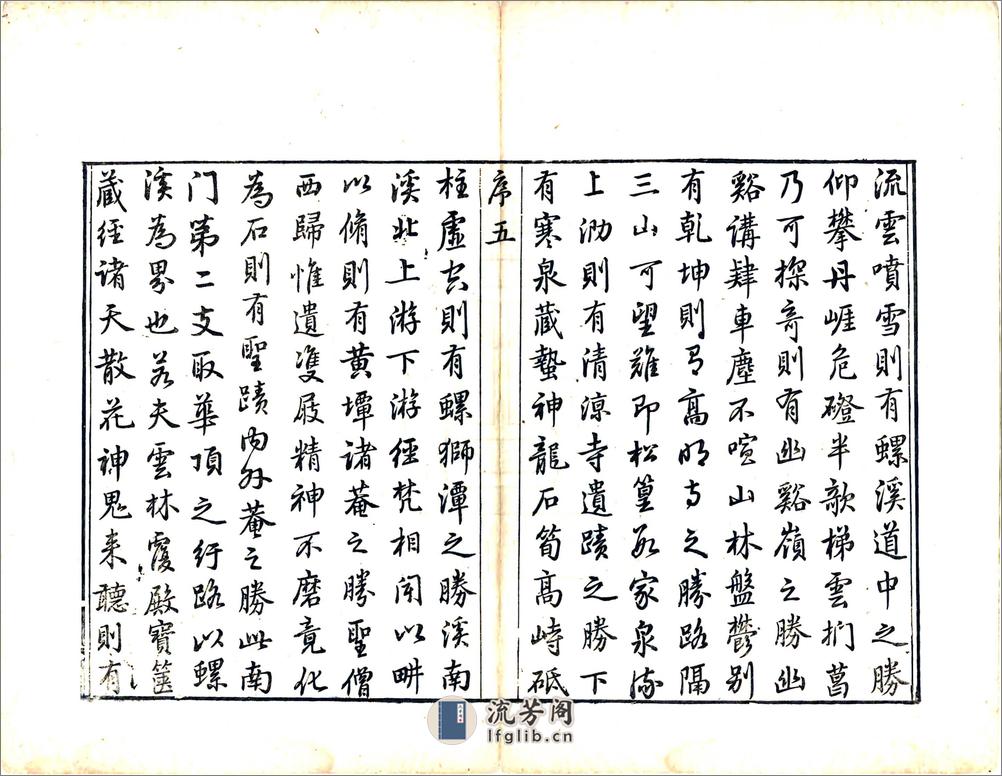 流雲噴雪則有螺溪道中之勝
仰攀丹崕危磴半欹梯雲捫葛
乃可探奇則有幽谿嶺之勝幽
谿講肆車塵不喧山林盤鬱别
有乾坤則有高明寺之勝路隔
三山可望難即松篁家泉
上泐則有清涼寺遺蹟之勝下
有寒泉藏蟄神龍石筍高峙砥
序五
柱虛空則有螺獅潭之勝溪南
溪北上游下游經梵相聞以畊
以脩則有黄壇諸菴之勝聖僧
西歸惟遺隻屐精神不磨竟化
為石則有聖蹟内外菴之勝此南
门第二支取華頂之行路以螺
溪為界也若夫雲林覆殿寶篋
藏経諸天散花神鬼来聽則有
流芳阁
lfglib.cn